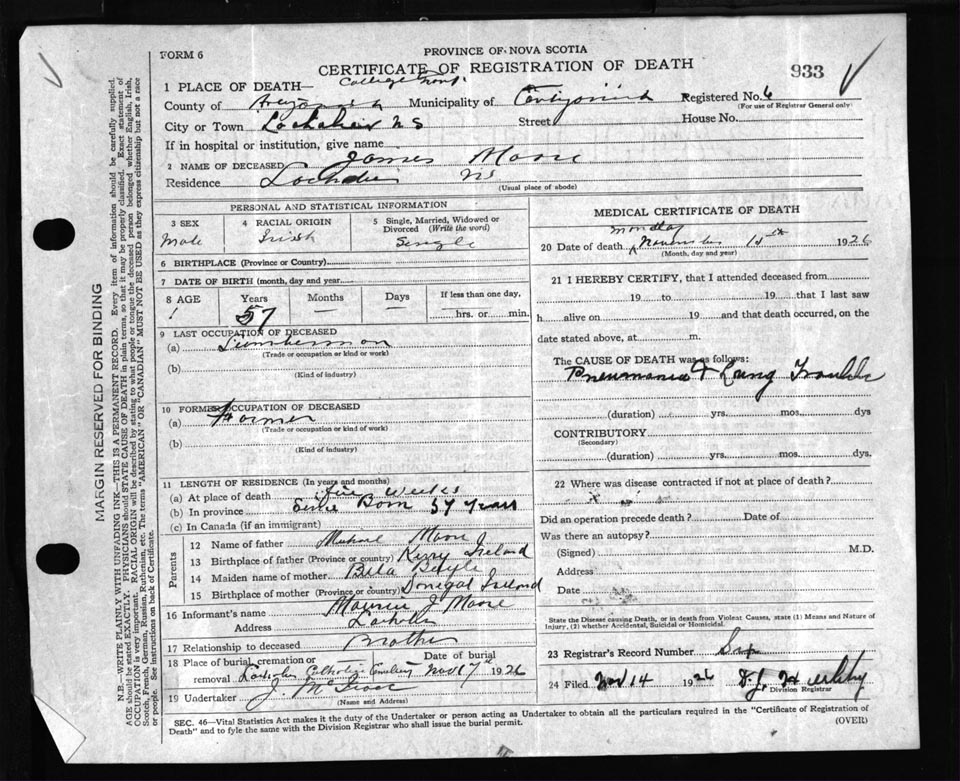 FORM 6
PROVINCE OF NOVA SCOTIA
CERTIFICATE OF REGISTRATION OF DEATH
933
1 PLACE OF DEATH— College
County of Municipality of Antigonish Registered No. 6
(For use of Registrar General only)
City or Town Lochaber N S Street House No.
If in hospital or institution, give name
2 NAME OF DECEASED James Moore
Residence Lochaber NS
(Usual place of abode)
PERSONAL AND STATISTICAL INFORMATION
3 SEX
Male
4 RACIAL ORIGIN
Irish
5 Single, Married, Widowed or Divorced (Write the word)
Single
6 BIRTHPLACE (Province or Country)
7 DATE OF BIRTH (month, day and year
8 AGE
Years
57
Months
—
Days
—
If less than one day,
hrs. or min.
9 LAST OCCUPATION OF DECEASED
(a) Lumberman
(Trade or occupation or kind or work)
(b)
(Kind of industry)
10 FORMER OCCUPATION OF DECEASED
(a) Farmer
(Trade or occupation or kind of work)
(b)
(Kind of industry)
11 LENGTH OF RESIDENCE (In years and months)
(a) At place of death five weeks
(b) In province Born 57 years
(c) In Canada (if an immigrant)
Parents
12 Name of father Michael Moore
13 Birthplace of father (Province or country) Kerry Ireland
14 Maiden name of mother
15 Birthplace of mother (Province or country) Donegal Ireland
16 Informant's name Maurice J Moore
Address Lochaber
17 Relationship to deceased Brother
18 Place of burial, cremation or removal Lochaber Catholic Cemetery
Date of burial Nov 17th 1926
19 Undertaker
(Name and Address)
MEDICAL CERTIFICATE OF DEATH
20 Date of death Monday November 15th 1926
(Month, day and year)
21 I HEREBY CERTIFY, that I attended deceased from
19 to 19 that I last saw
h alive on 19 and that death occurred, on the
date stated above, at m.
The CAUSE OF DEATH was as follows:
Pneumonia & Lung Trouble
(duration) yrs. mos. dys
CONTRIBUTORY
(Secondary)
(duration) yrs. mos. dys.
22 Where was disease contracted if not at place of death?
Did an operation precede death? Date of
Was there an autopsy?
(Signed) M.D.
Address
Date
State the Disease causing Death, or in death from Violent Causes, state (1) Means and Nature of
Injury, (2) whether Accidental, Suicidal or Homicidal.
23 Registrar's Record Number Six
24 Filed Nov 14 1926
Division Registrar
SEC. 46—Vital Statistics Act makes it the duty of the Undertaker or person acting as Undertaker to obtain all the particulars required in the "Certificate of Registration of
Death" and to fyle the same with the Division Registrar who shall issue the burial permit.
(OVER)
MARGIN RESERVED FOR BINDING
N.B.—WRITE PLAINLY WITH UNFADING INK—THIS IS A PERMANENT RECORD. Every item of information should be carefully supplied.
AGE should be stated EXACTLY. PHYSICIANS should STATE CAUSE OF DEATH in plain terms, so that it may be properly classified. Exact statement of
OCCUPATION is very important. RACIAL ORIGIN will be described by stating to what people or tongue the deceased person belonged whether English, Irish,
Scotch, French, German, Russian, Ruthenian, etc. The terms "AMERICAN" OR "CANADIAN" MUST NOT BE USED as they express citizenship but not a race
or people. See instructions on back of Certificate.